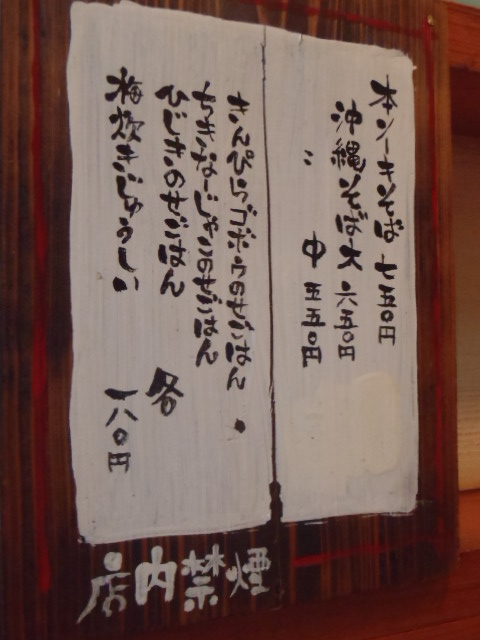 本ソーキそば 七五〇円
沖縄そば大 六五〇円
〃 中 五五〇円
きんぴらゴボウのせごはん
ちきなーじゃこのせごはん
ひじきのせごはん
梅炊きじゅうしい
各
一八〇円
店内禁煙